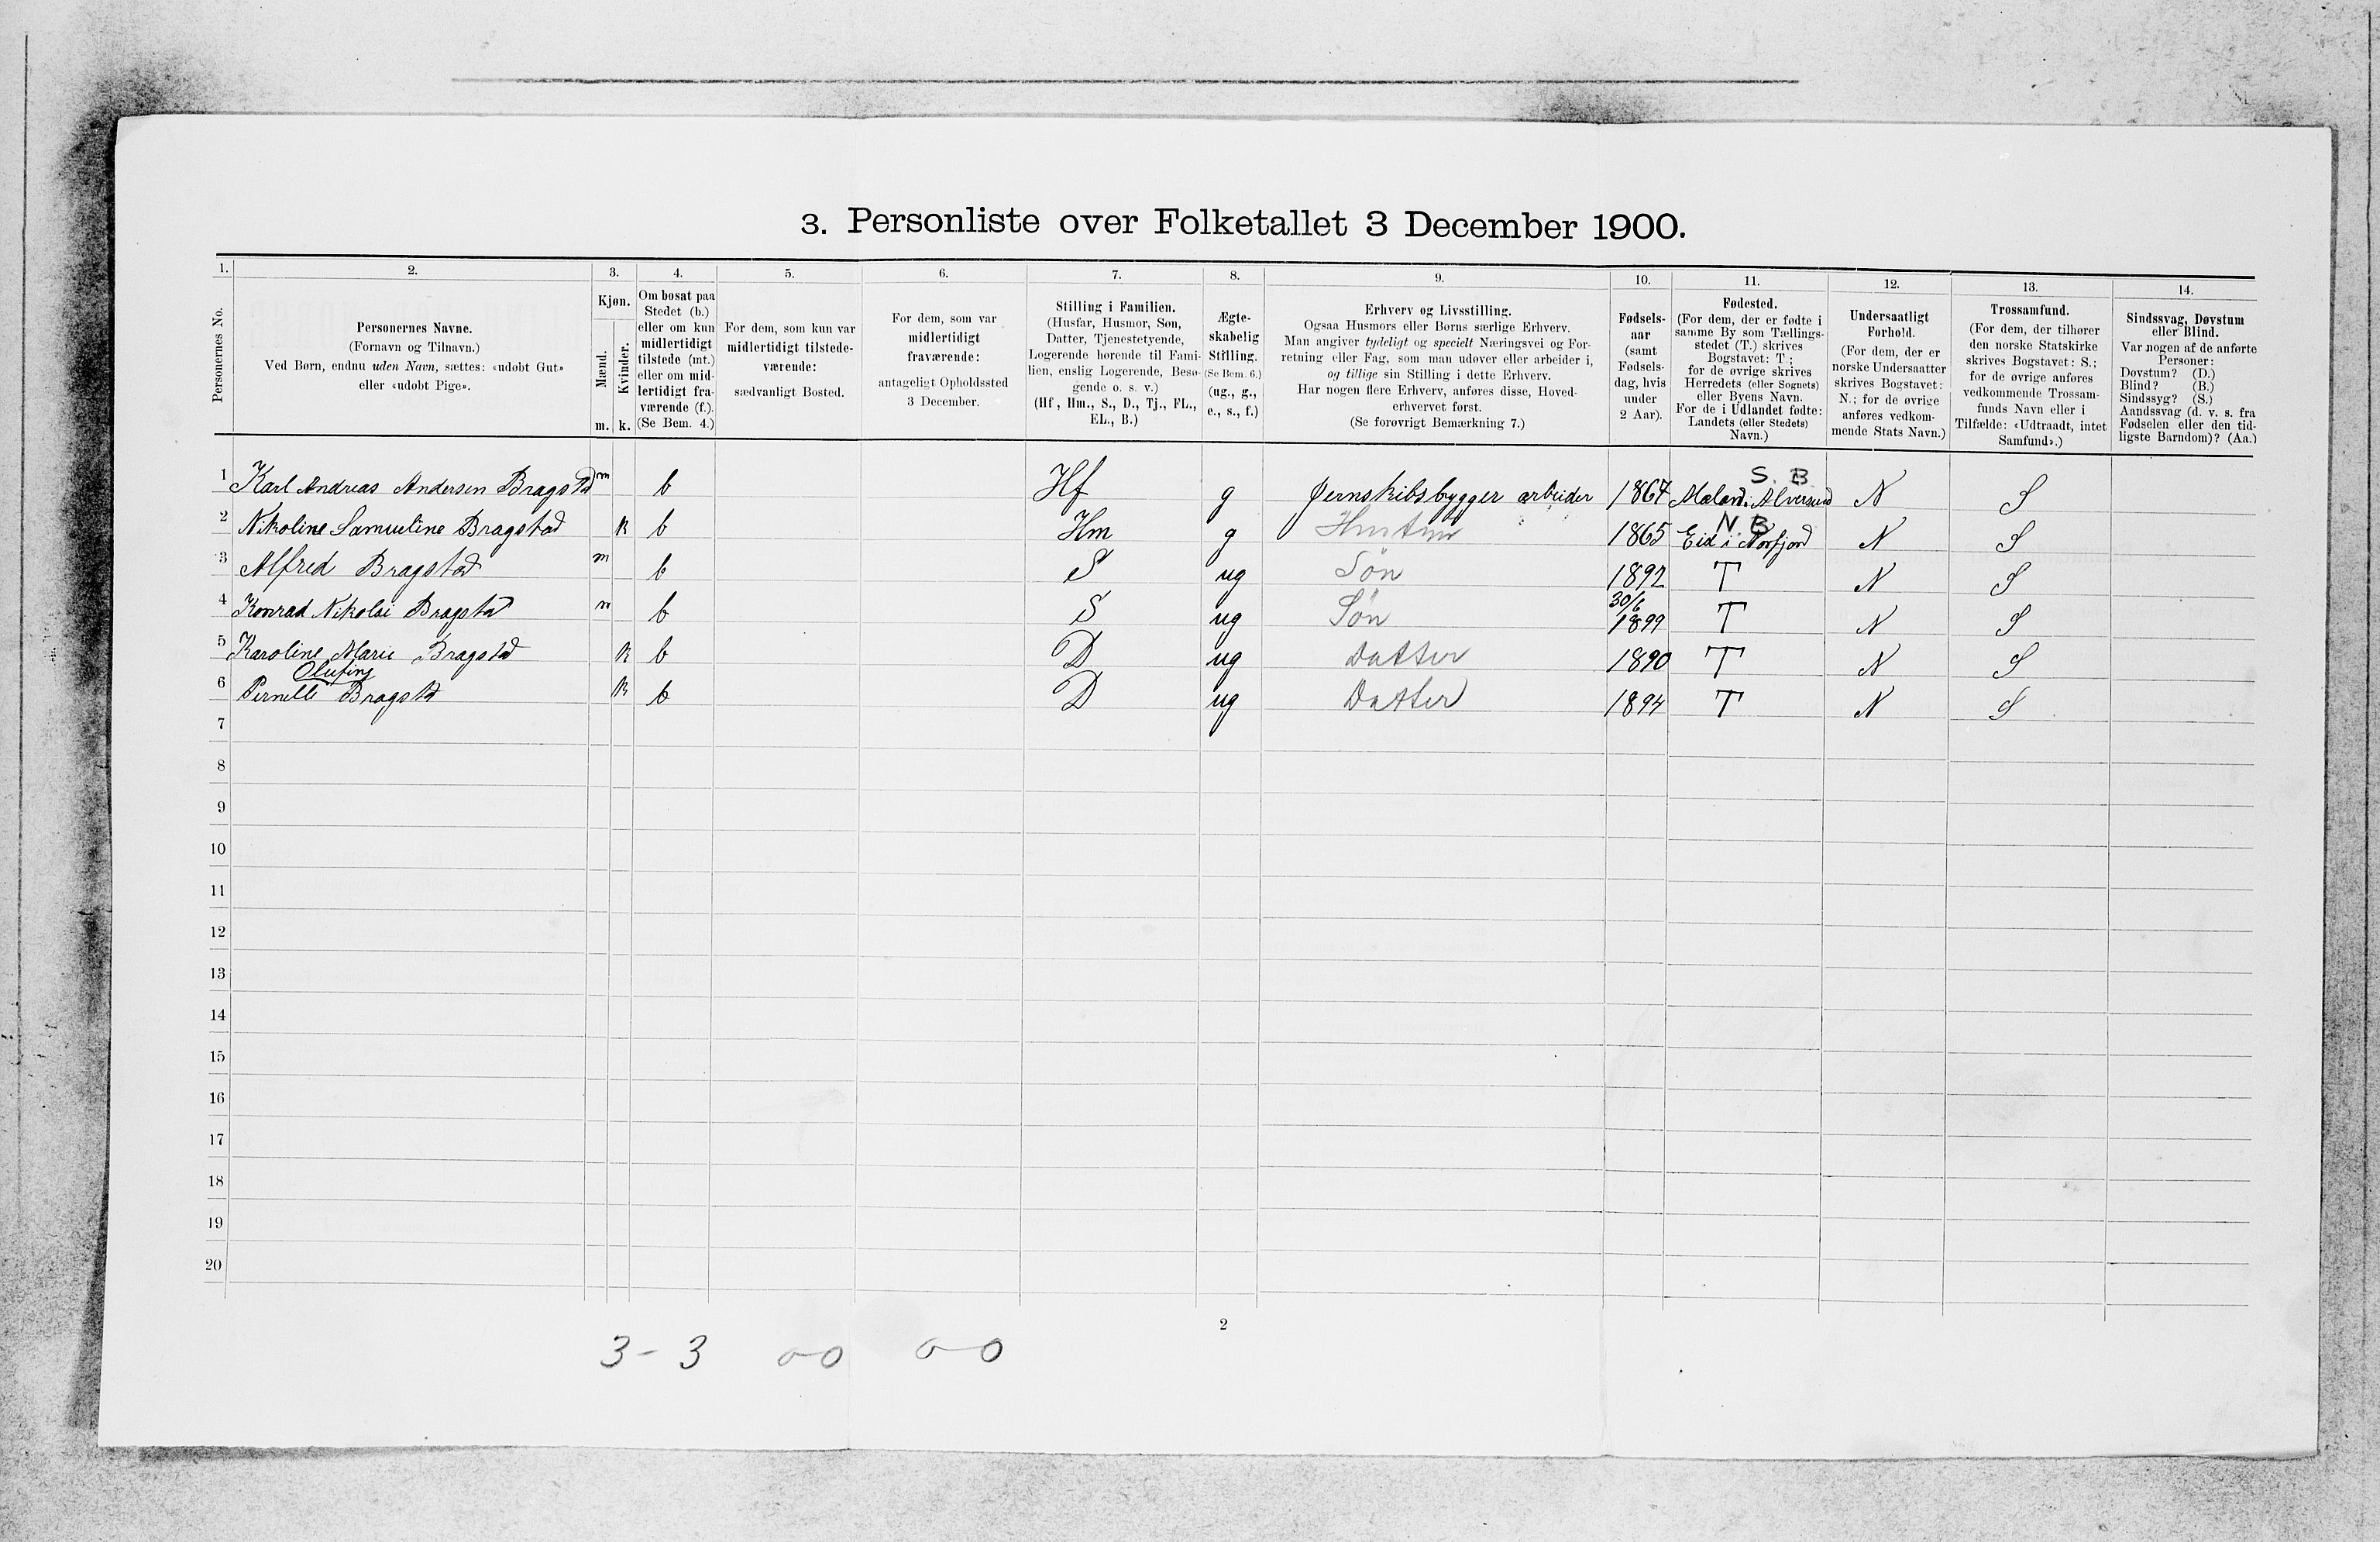 3. Personliste over Folketallet 3 December 1900.
1. 2. 3. 4. 5. 6. 7. 8. 9. 10. 11. 12. 13. 14.
Personernes No.
Personernes Navne.
(Fornavn og Tilnavn.)
Ved Børn, endnu uden Navn, sættes: «udøbt Gut»
eller «udøbt Pige».
Kjøn.
Mænd.
Kvinder.
m. k.
Om bosat paa
Stedet (b.)
eller om kun
midlertidigt
tilstede (mt.)
eller om mid-
lertidigt fra-
værende (f.).
(Se Bem. 4.)
For dem, som kun var
midlertidigt tilstede-
værende:
sædvanligt Bosted.
For dem, som var
midlertidigt
fraværende:
antageligt Opholdssted
3 December.
Stilling i Familien.
(Husfar, Husmor, Søn,
Datter, Tjenestetyende,
Logerende hørende til Fami-
lien, enslig Logerende, Besø-
gende o. s. v.)
(Hf., Hm., S., D., Tj., FL.,
EL., B.)
Ægte-
skabelig
Stilling.
(Se Bem. 6.)
(ug., g.,
e., s., f.)
Erhverv og Livsstilling.
Ogsaa Husmors eller Børns særlige Erhverv.
Man angiver tydeligt og specielt Næringsvei og For-
retning eller Fag, som man udøver eller arbeider i,
og tillige sin Stilling i dette Erhverv.
Har nogen flere Erhverv, anføres disse, Hoved-
erhvervet først.
(Se forøvrigt Bemærkning 7.)
Fødsels-
aar
(samt
Fødsels-
dag, hvis
under
2 Aar).
Fødested.
(For dem, der er fødte i
samme By som Tællings-
stedet (T.) skrives
Bogstavet: T.;
for de øvrige skrives
Herredets (eller Sognets)
eller Byens Navn.
For de i Udlandet fødte:
Landets (eller Stedets)
Navn.)
Undersaatligt
Forhold.
(For dem, der er
norske Undersaatter
skrives Bogstavet:
N.; for de øvrige
anføres vedkom-
mende Stats Navn.)
Trossamfund.
(For dem, der tilhører
den norske Statskirke
skrives Bogstavet: S.;
for de øvrige anføres
vedkommende Trossam-
funds Navn eller i
Tilfælde: «Udtraadt, intet
Samfund».)
Sindssvag, Døvstum
eller Blind.
Var nogen af de anførte
Personer:
Døvstum? (D.)
Blind? (B.)
Sindssyg? (S.)
Aandssvag (d. v. s. fra
Fødselen eller den tid-
ligste Barndom)? (Aa.)
S. B
1 Karl Andreas Andersen Bragstad m b Hf g Jernskibsbygger arbeider 1867 Alversund N S
N B
2 Nikoline Samueline Bragstad k b Hm g Hustru 1865 Eid i Norfjord N S
3 Alfred Bragstad m b S ug Søn 1892 T N S
30/6
4 Konrad Nikolai Bragstad m b S ug Søn 1899 T N S
5 Karoline Marie Bragstad k b D ug Datter 1890 T N S
Olufine
6 Pernille Bragstad k b D ug Datter 1894 T N S
7
8
9
10
11
12
13
14
15
16
17
18
19
20
2
3 - 3 0-0 0-0